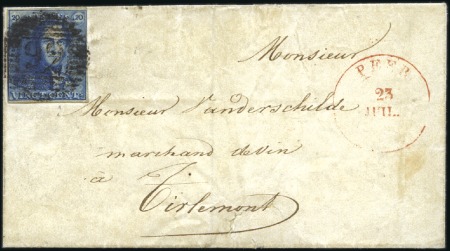 20 20
VINGT CENTS
Monsieur
PEER
23
JUIL.
Monsieur Vanderschilde
marchand de vin
à
Tirlemont